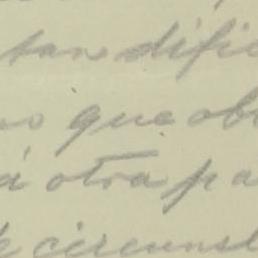 tan dific
os que ob
á otra pa
circunst